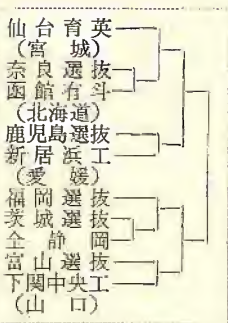 仙台育英
(宮城)
奈良選抜
函館有斗
(北海道)
鹿児島選抜
新居浜工
(愛媛)
福岡選抜
茨城選抜
全静岡
富山選抜
下関中央工
(山口)